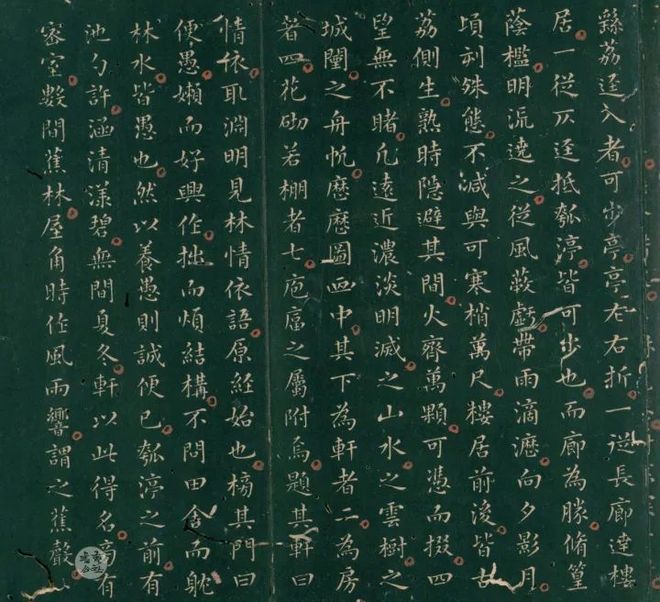 繇荔逕入者可步亭亭左右折一從長廊達樓
居一從仄逕抵瓠渟皆可步也而廊為勝脩篁
蔭檻明流遶之從風蔌戲帶雨滴瀝向夕影月
頃刻殊態不減與可寒梢萬尺樓居前後皆古
荔側生熟時隱避其間火齊萬顆可憑而掇四
望無不睹凡遠近濃淡明滅之山水之雲樹之
城闉之舟帆歷歷圖画中其下為軒者二為房
者四花砌若棚者七庖湢之屬附焉題其軒曰
情依取淵明見林情依語原經始也榜其門曰
便愚嬾而好興作拙而煩結構不問田舍而躭
林水皆愚也然以養愚則誠便已瓠渟之前有
池勺許涵清漾碧無間夏冬軒以此得名高有
密室數間蕉林屋角時作風雨響謂之蕉聲